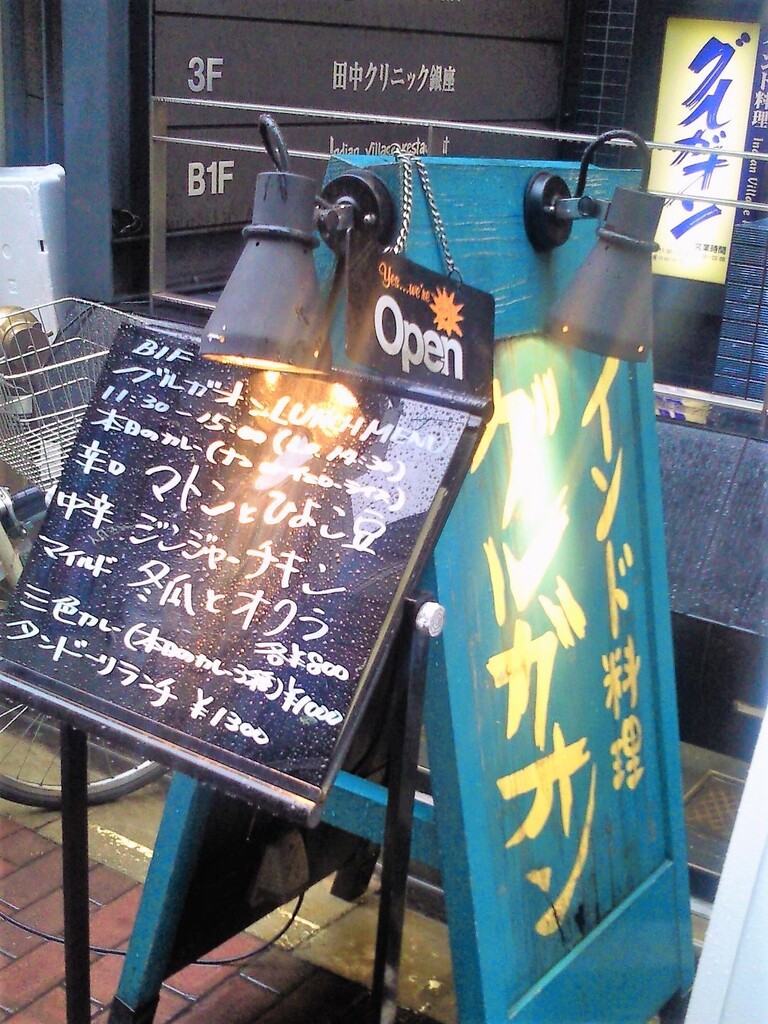 3F 田中クリニック銀座
Indian village restaurant
B1F
グルガオン
インド料理 Indian Village
営業時間
Yes...we're
Open
B1F
グルガオン LUNCH MENU
11:30-15:00 (14:30)
本日のカレー(ナン ライス)
辛口 マトンとひよこ豆
中辛 ジンジャーチキン
マイルド 冬瓜とオクラ
各¥800
三色カレー(本日のカレー3種)¥1000
タンドーリランチ ¥1300
インド料理
グルガオン